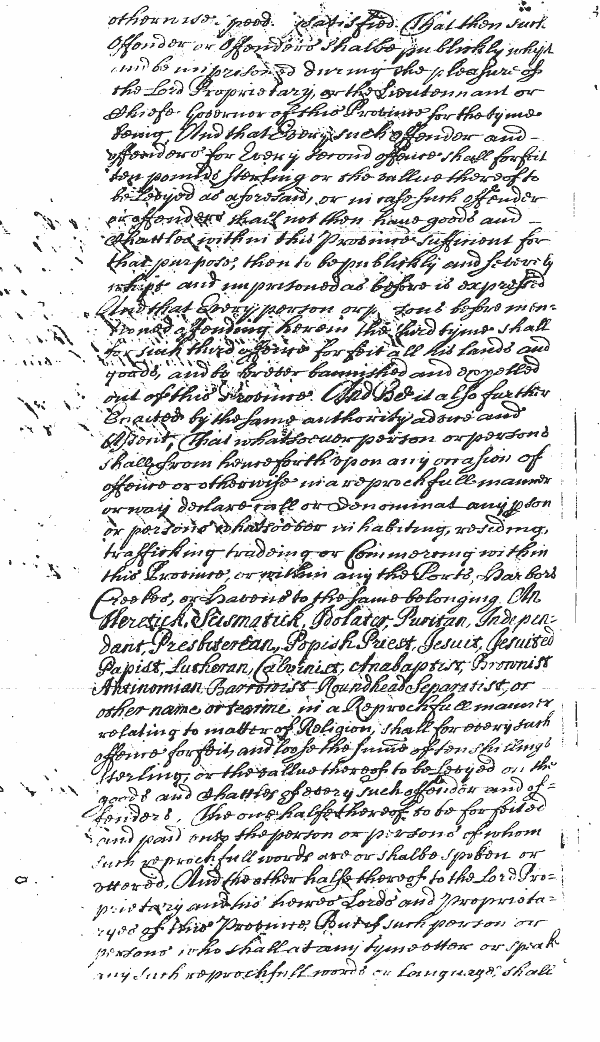 otherwise peed satisfied. That then such
Offender or Offenders shalbe publickly whipt
and be imprisoned during the pleasure of
the Lord Proprietary, or the Lieutennant or
Chiefe Governor of this Province for the tyme
being And that Every such Offender and
offenders for Every Second offence shall forfeit
ten pounds Sterling or the vallue thereof to
be Levyed as aforesaid, or in case such offender
or offenders shall not then have goods and
Chattles within this Province sufficient for
that purpose, then to be publickly and severely
whipt and imprisoned as before is expressed
And that Every person or p sons before men-
tioned offending herein the third tyme shall
for such third offence forfeit all his lands and
goods, and be forever bannished and expelled
out of this Province. And Be it also further
Enacted by the same authority advice and
Assent, That whatsoever person or persons
shall from henceforth upon any occasion of
offence or otherwise in a reprochfull manner
or way declare call or denominat any pson
or persons whatsoever inhabiting, residing,
trafficking tradeing or Commerceing within
this Province, or within any the Ports, Harbors
Creekes, or Havens to the same belonging, An
Heretick, Scismatick, Idolator, Puritan, Indepen-
dant, Presbiterean, Popish Priest, Jesuit, Jesuited
Papist, Lutheran, Calvinist, Anabaptist, Brownist
Antinomian Barronist Roundhead Separatist, or
other name or tearme in a Reprochfull manner
relating to matter of Religion, shall for every such
offence forfeit, and loose the summe of ten shillings
sterling, or the vallue thereof to be Levyed on the
goods and Chattles of every such offender and of-
fenders, The one halfe thereof to be forfeited
and paid unto the person or persons of whom
such reprochfull words are or shalbe spoken or
uttered. And the other halfe thereof to the Lord Pro-
prietary and his heires Lords and Proprieta-
ryes of this Province, But if such person or
persons who shall at any tyme utter or speak
any such reprochfull words or Language, shall